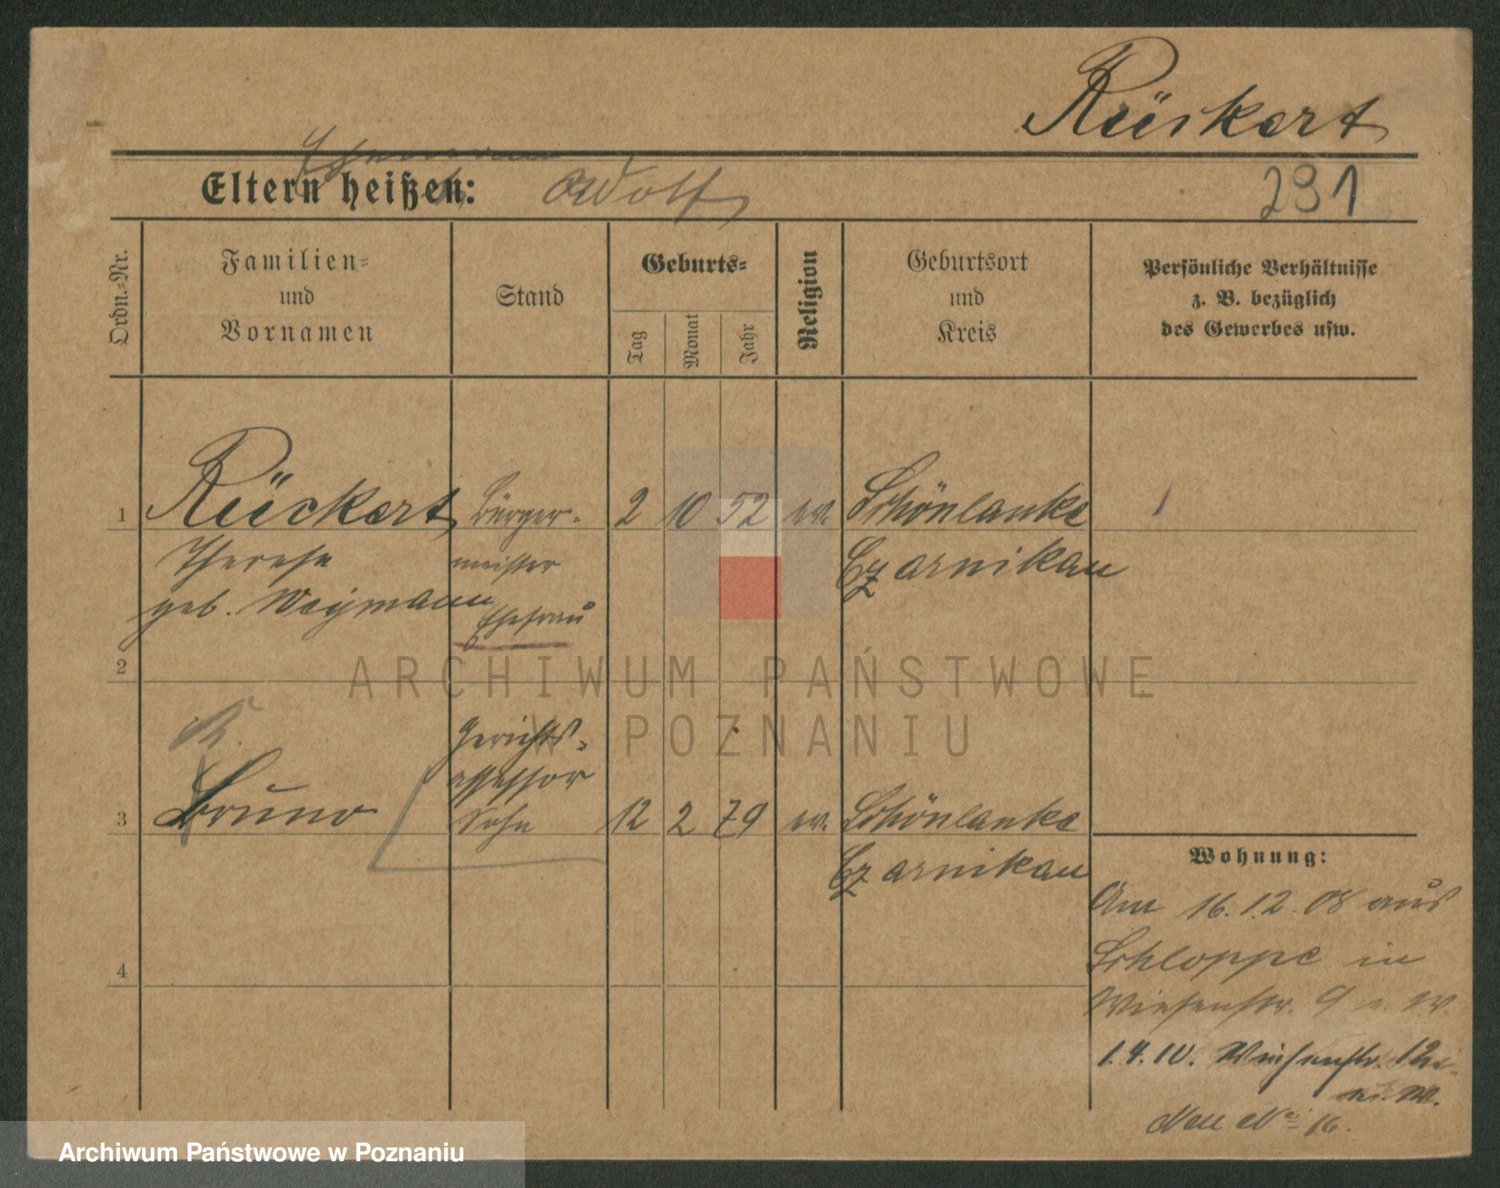 Rückert
Ehemann
Eltern heißen: Adolf
291
Ordn.-Nr.
Familien-
und
Vornamen
Stand
Geburts-
Tag
Monat
Jahr
Religion
Geburtsort
und
Kreis
Persönliche Verhältnisse
z. B. bezüglich
des Gewerbes usw.
1 Rückert, Bürger- 2 10 52 ev. Schönlanke
Therese meister Czarnikau
geb. Weymann Ehefrau
2
R. Gerichts-
assessor
3 Bruno Sohn 12 2 79 ev. Schönlanke
Czarnikau
4
Wohnung:
Am 16.12.08 aus
Schloppe in
Wiesenstr. 9 e. W.
1.4.10. Wiesenstr. 12
e. W.
Neu No 16.
ARCHIWUM PAŃSTWOWE
W POZNANIU
Archiwum Państwowe w Poznaniu